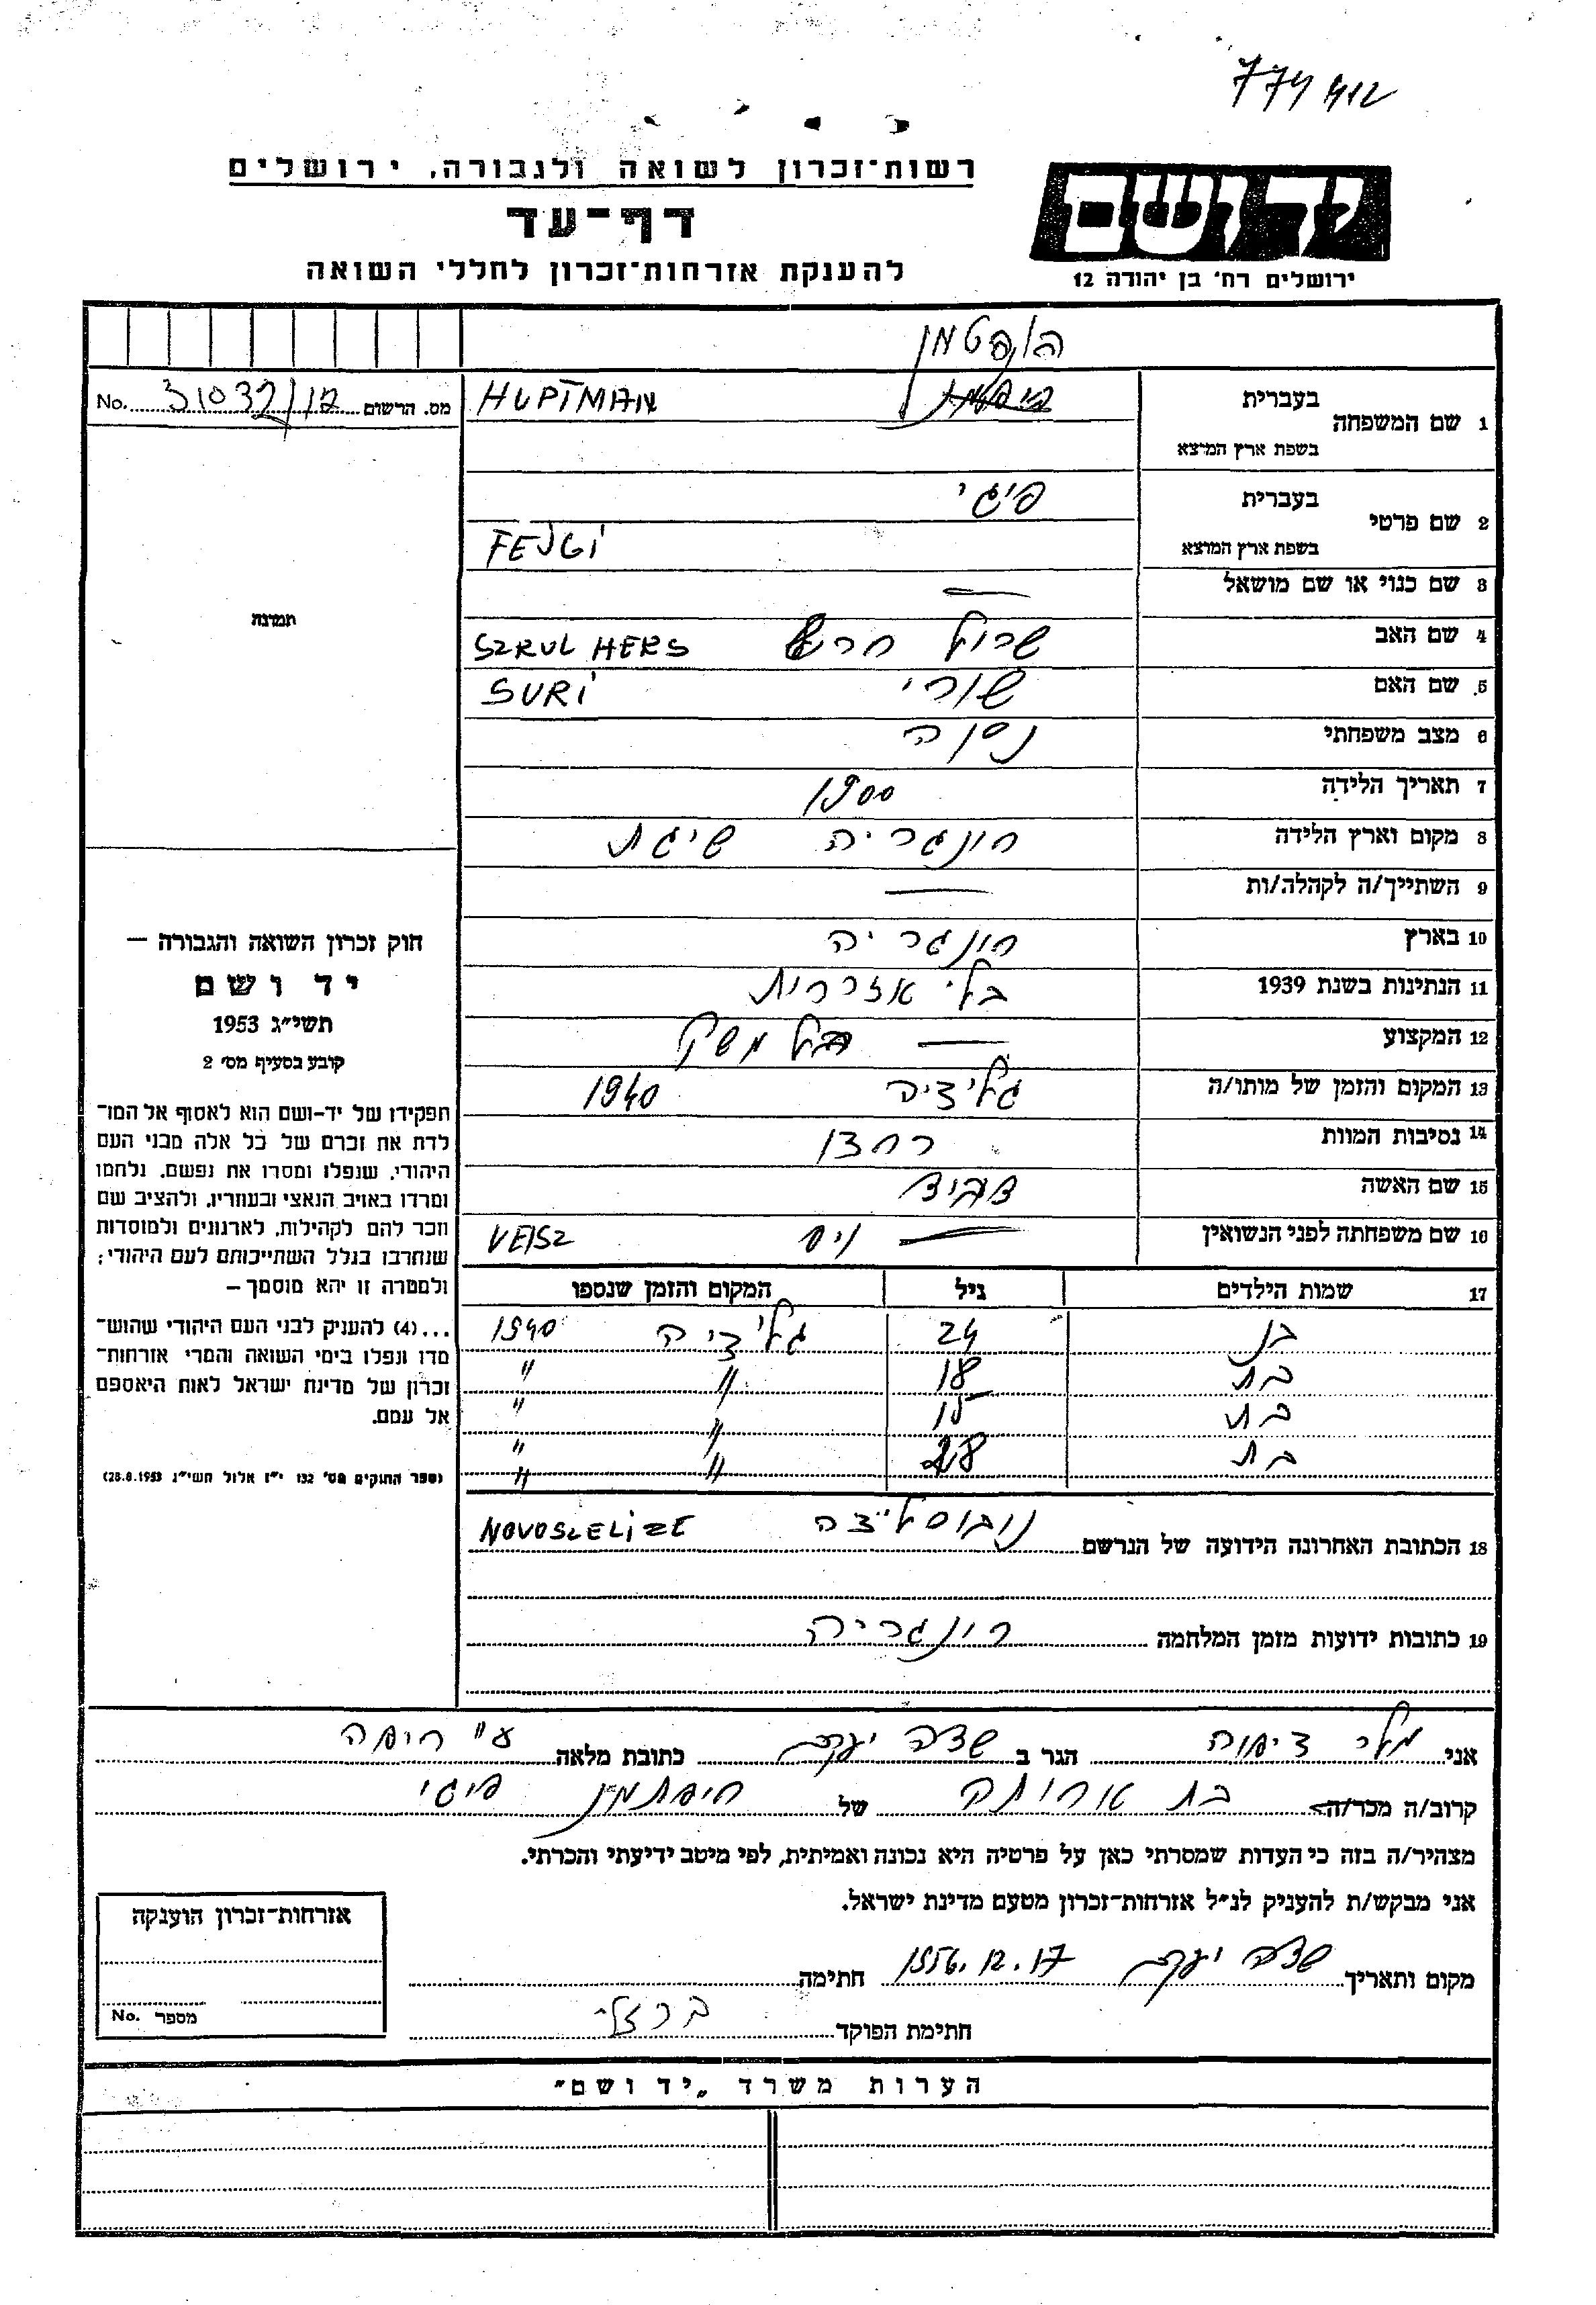 774 412
רשות־זכרון לשואה ולגבורה, ירושלים
דף־עד
להענקת אזרחות־זכרון לחללי השואה
יד ושם
ירושלים רח' בן יהודה 12
הופטמן
מס. הרשום 31032/12 No.
1 שם המשפחה בעברית
בשפת ארץ המוצא HUPTMAN
2 שם פרטי בעברית פיגי
בשפת ארץ המוצא FEJGI
3 שם כנוי או שם מושאל —
4 שם האב שרול הרש SZRUL HERS
5. שם האם שורי SURI
6 מצב משפחתי נשוה
7 תאריך הלידה 1900
8 מקום וארץ הלידה הונגריה שיגת
9 השתייך/ה לקהלה/ות —
10 בארץ הונגריה
11 הנתינות בשנת 1939 בלי אזרחות
12 המקצוע — בעל משק
13 המקום והזמן של מותו/ה גליציה 1940
14 נסיבות המוות רחצו
15 שם האשה דוביד
16 שם משפחתה לפני הנשואין — ויס VEISZ
17 שמות הילדים גיל המקום והזמן שנספו
בן 24 גליציה 1940
בת 18 " "
בת 15 " "
בת 28 " "
18 הכתובת האחרונה הידועה של הנרשם נובוסליצה NOVOSZELIZE
19 כתובות ידועות מזמן המלחמה הונגריה
תמונה
חוק זכרון השואה והגבורה —
יד ושם
תשי"ג 1953
קובע בסעיף מס' 2
תפקידו של יד־ושם הוא לאסוף אל המו־
לדת את זכרם של כל אלה מבני העם
היהודי, שנפלו ומסרו את נפשם, נלחמו
ומרדו באויב הנאצי ובעוזריו, ולהציב שם
וזכר להם לקהילות, לארגונים ולמוסדות
שנחרבו בגלל השתייכותם לעם היהודי;
ולמטרה זו יהא מוסמך —
...(4) להעניק לבני העם היהודי שהוש־
מדו ונפלו בימי השואה והמרי אזרחות־
זכרון של מדינת ישראל לאות היאספם
אל עמם.
(ספר החוקים מס' 132 י"ז אלול תשי"ג 28.8.1953)
אני מלי ציפורה הגר ב שער יעקב כתובת מלאה ע"י חיפה
קרוב/ה מכר/ה בת אחותה של הופתמן פיגי
מצהיר/ה בזה כי העדות שמסרתי כאן על פרטיה היא נכונה ואמיתית, לפי מיטב ידיעתי והכרתי.
אני מבקש/ת להעניק לנ"ל אזרחות־זכרון מטעם מדינת ישראל.
מקום ותאריך שער יעקב 17.12.1956 חתימה
חתימת הפוקד ברזלי
אזרחות־זכרון הוענקה
מספר No.
הערות משרד „יד ושם"